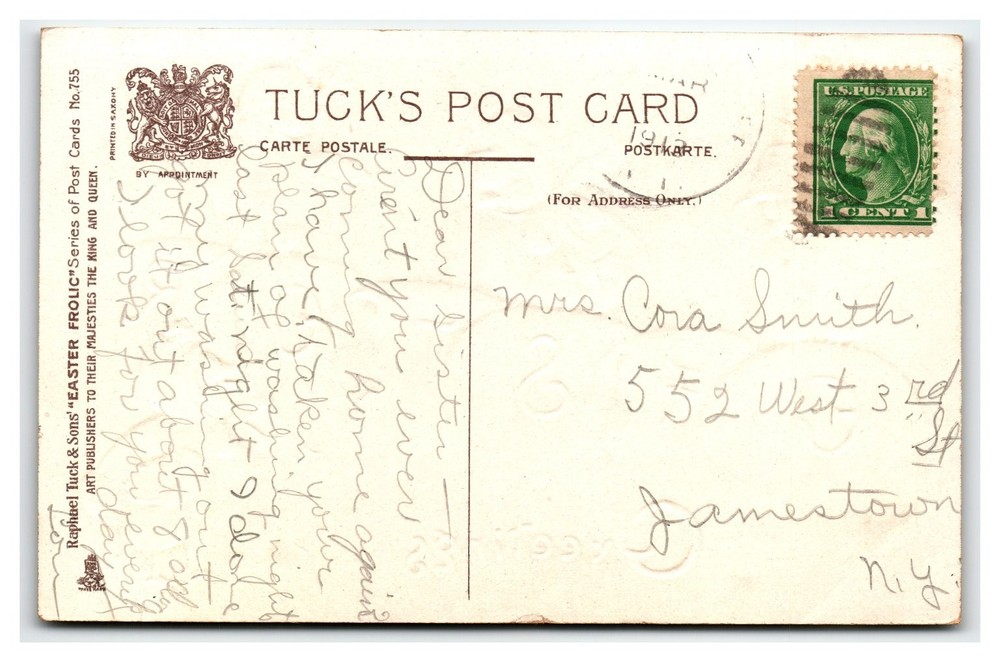 TUCK'S POST CARD
CARTE POSTALE.
POSTKARTE.
(FOR ADDRESS ONLY.)
BY APPOINTMENT
PRINTED IN SAXONY
Raphael Tuck & Sons' "EASTER FROLIC" Series of Post Cards No. 755
ART PUBLISHERS TO THEIR MAJESTIES THE KING AND QUEEN.
U.S. POSTAGE
1 CENT 1
191
Dear Sister —
Arent you ever
Coming home again
I have taken your
plan of washing nights
last Sat. night I done
my washing out
Got it out about 8 o'clk
I look for you every
day
Mrs. Cora Smith.
552 West 3rd
St
Jamestown
N.Y.